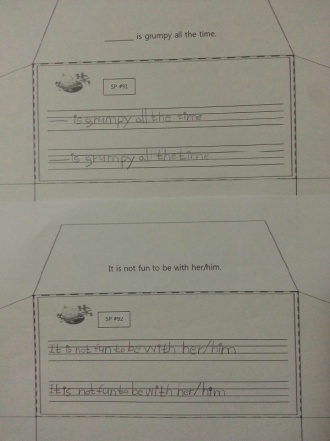 ______ is grumpy all the time.
SP #91
___ is grumpy all the time
___ is grumpy all the time
It is not fun to be with her/him.
SP #92
It is not fun to be with her/him
It is not fun to be with her/him